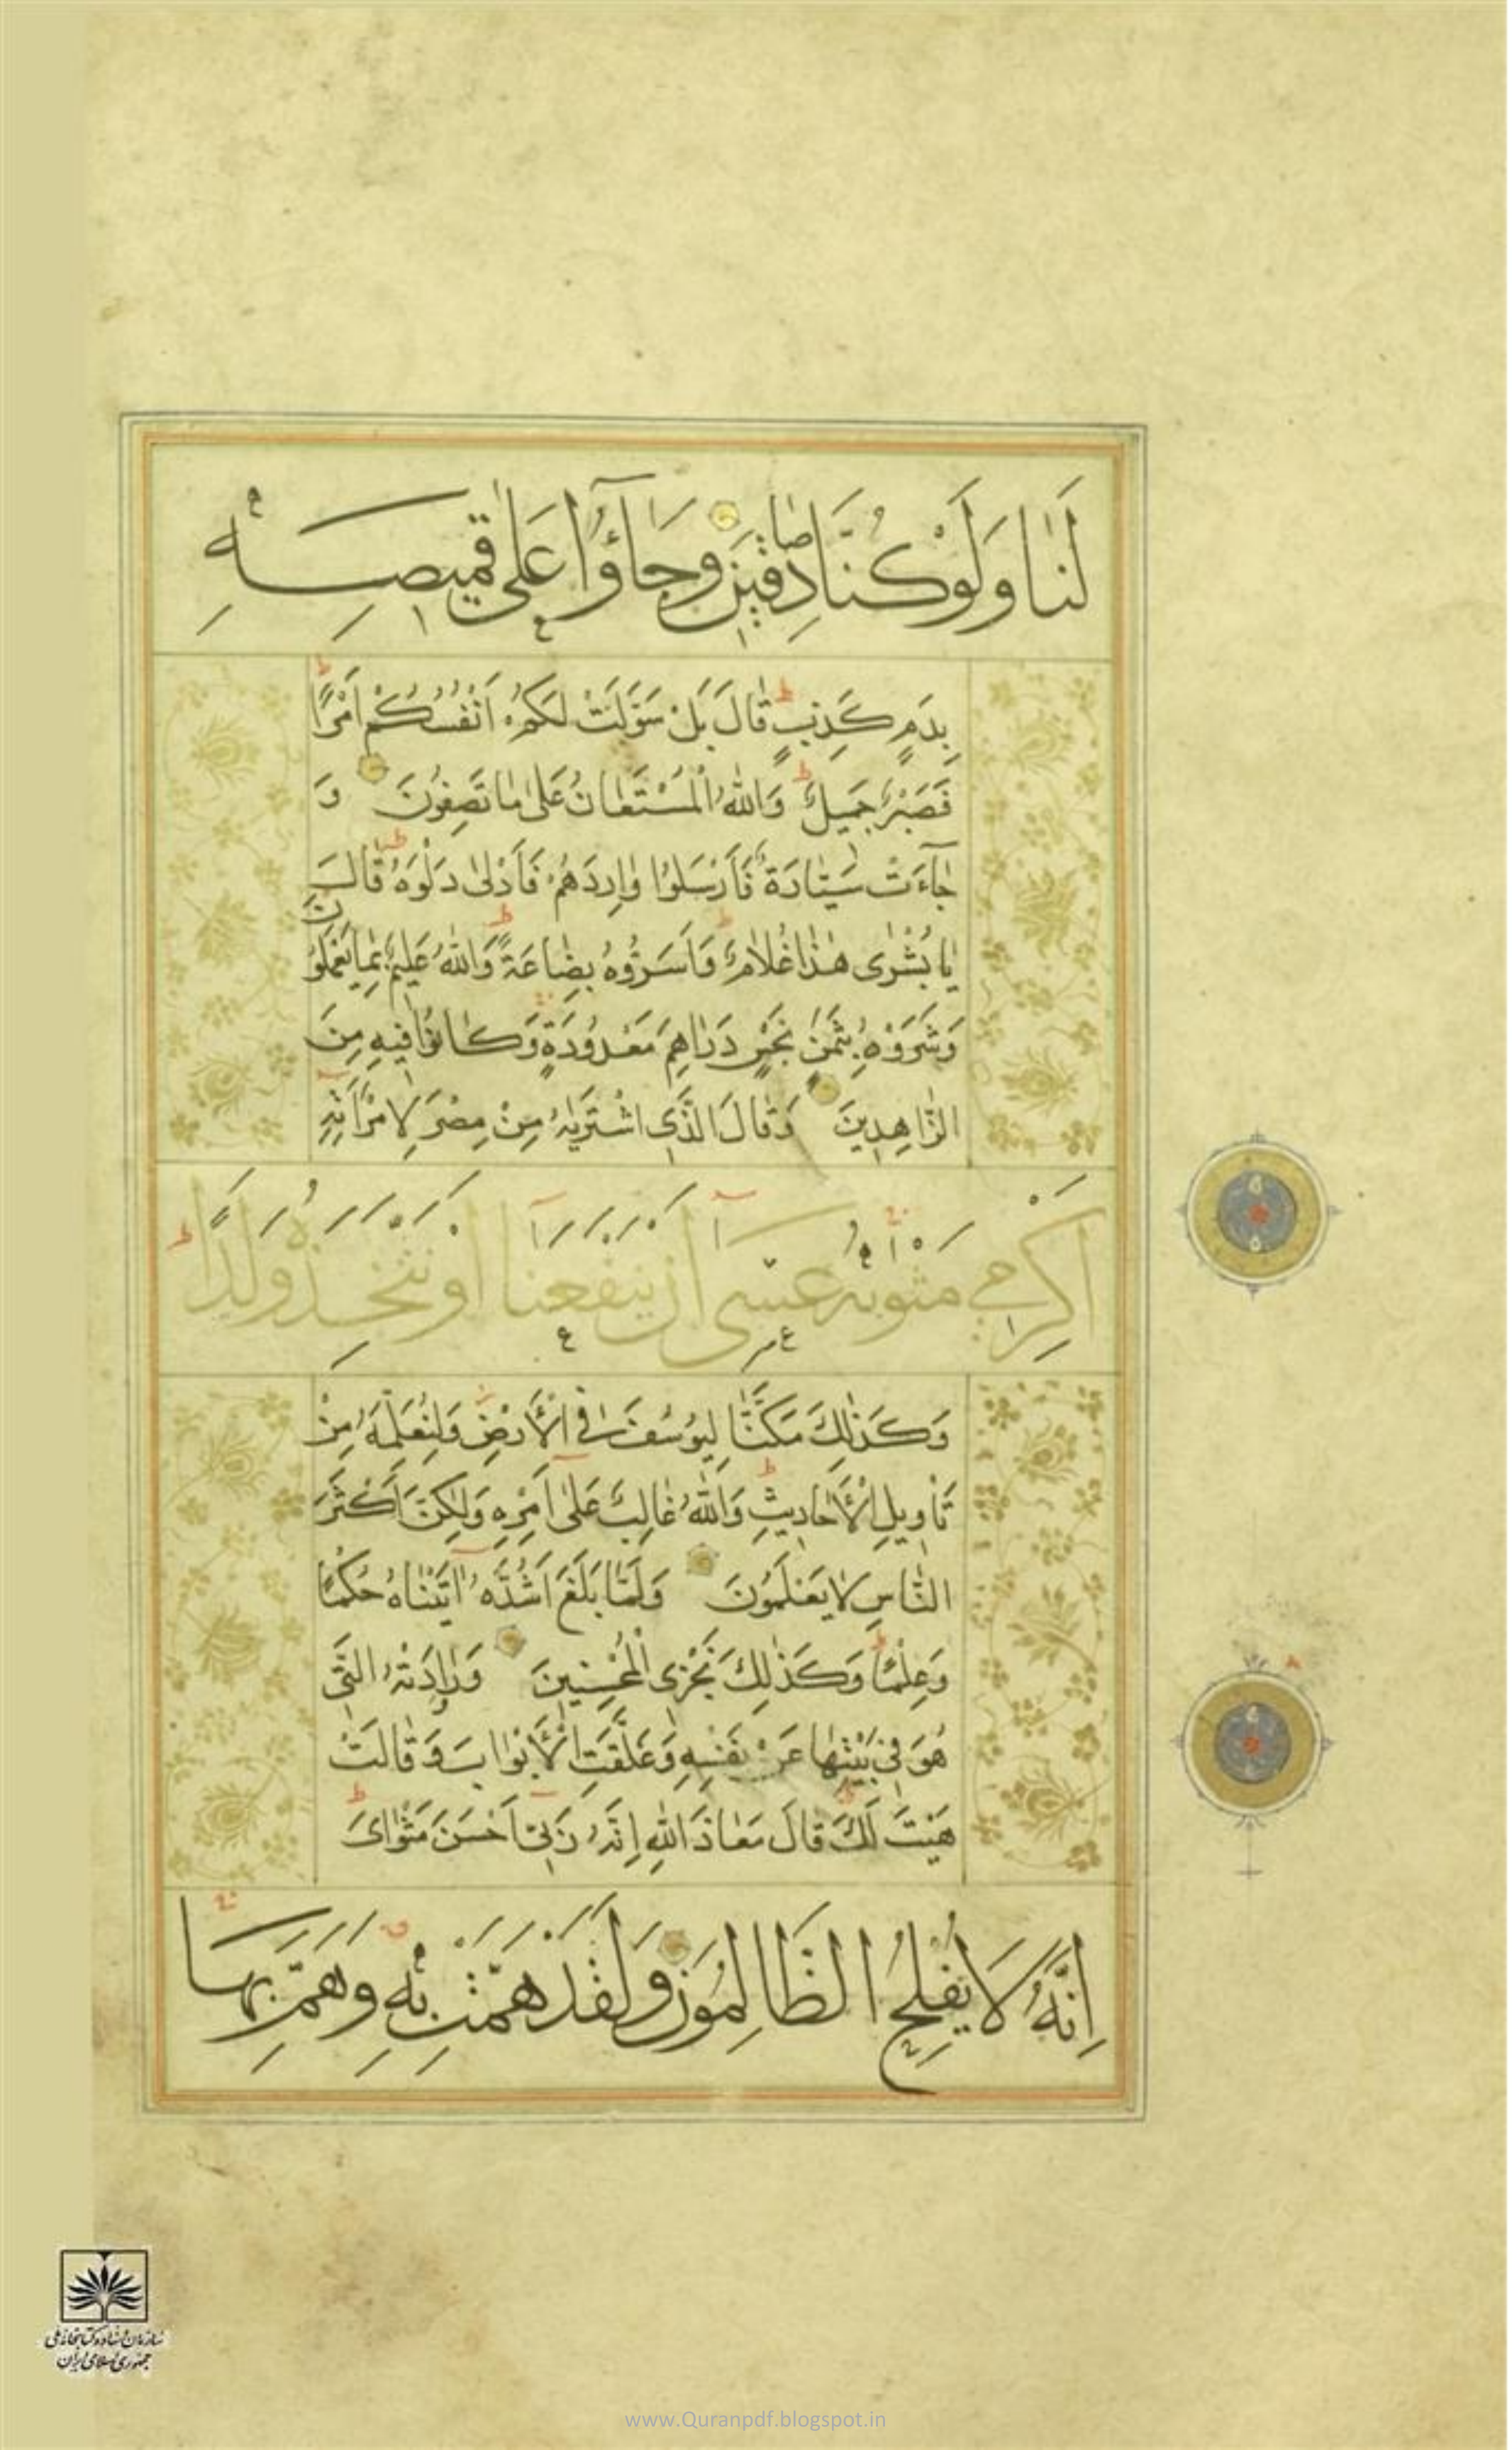 لَنَا وَلَوْ كُنَّا صَادِقِينَ وَجَاؤُا عَلَى قَمِيصِهِ
بِدَمٍ كَذِبٍ قَالَ بَلْ سَوَّلَتْ لَكُمْ اَنْفُسُكُمْ اَمْرًا
فَصَبْرٌ جَمِيلٌ وَاللّٰهُ الْمُسْتَعَانُ عَلٰى مَا تَصِفُونَ وَ
جَاءَتْ سَيَّارَةٌ فَاَرْسَلُوا وَارِدَهُمْ فَاَدْلٰى دَلْوَهُ قَالَ
يَا بُشْرٰى هٰذَا غُلَامٌ وَاَسَرُّوهُ بِضَاعَةً وَاللّٰهُ عَلِيمٌ بِمَا يَعْمَلُونَ
وَشَرَوْهُ بِثَمَنٍ بَخْسٍ دَرَاهِمَ مَعْدُودَةٍ وَكَانُوا فِيهِ مِنَ
الزَّاهِدِينَ وَقَالَ الَّذِى اشْتَرٰيهُ مِنْ مِصْرَ لِامْرَاَتِهِ
اَكْرِمِي مَثْوٰيهُ عَسٰى اَنْ يَنْفَعَنَا اَوْ نَتَّخِذَهُ وَلَدًا
وَكَذٰلِكَ مَكَّنَّا لِيُوسُفَ فِى الْاَرْضِ وَلِنُعَلِّمَهُ مِنْ
تَاْوِيلِ الْاَحَادِيثِ وَاللّٰهُ غَالِبٌ عَلٰى اَمْرِهِ وَلٰكِنَّ اَكْثَرَ
النَّاسِ لَا يَعْلَمُونَ وَلَمَّا بَلَغَ اَشُدَّهُ اٰتَيْنَاهُ حُكْمًا
وَعِلْمًا وَكَذٰلِكَ نَجْزِى الْمُحْسِنِينَ وَرَاوَدَتْهُ الَّتِى
هُوَ فِى بَيْتِهَا عَنْ نَفْسِهِ وَغَلَّقَتِ الْاَبْوَابَ وَقَالَتْ
هَيْتَ لَكَ قَالَ مَعَاذَ اللّٰهِ اِنَّهُ رَبِّى اَحْسَنَ مَثْوَاىَ
اِنَّهُ لَا يُفْلِحُ الظَّالِمُونَ وَلَقَدْ هَمَّتْ بِهِ وَهَمَّ بِهَا
سازمان اسناد و کتابخانه ملی
جمهوری اسلامی ایران
www.Quranpdf.blogspot.in